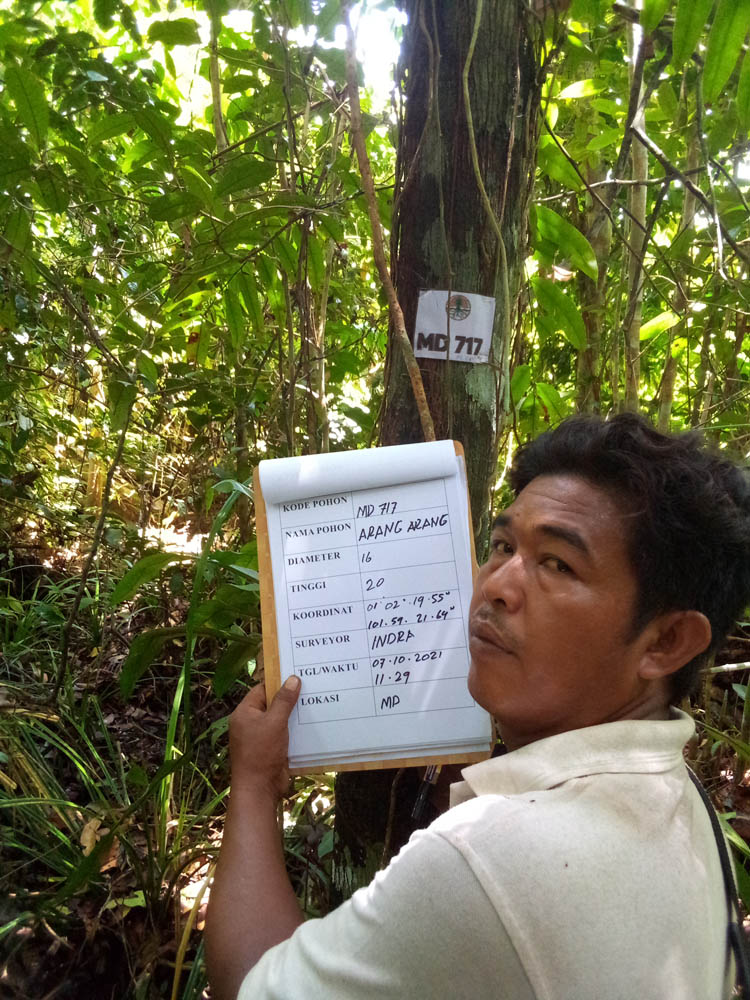 MD 717
KODE POHON MD 717
NAMA POHON ARANG ARANG
DIAMETER 16
TINGGI 20
KOORDINAT 01°02°.19.55"
101.59.21.64"
SURVEYOR INDRA
TGL/WAKTU 07.10.2021
11.29
LOKASI MD